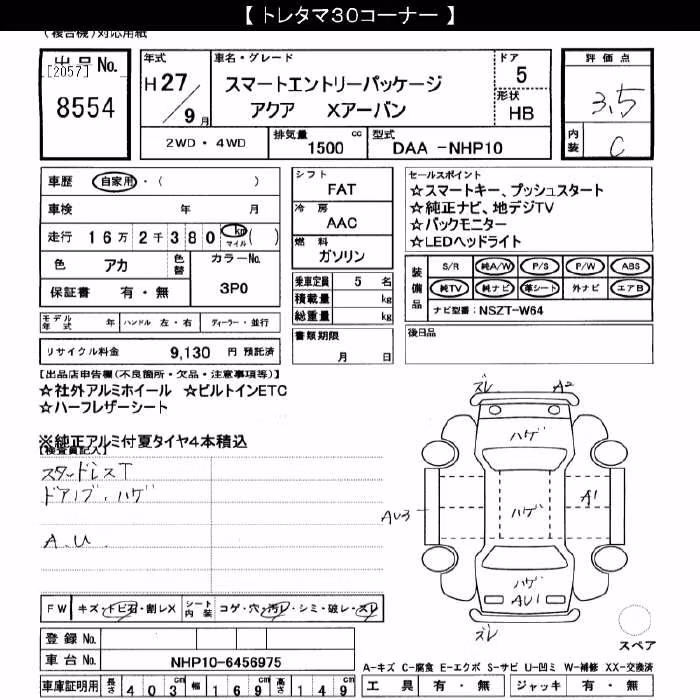 【 トレタマ30コーナー 】
(複合機)対応用紙
出品No.
[2057]
8554
年式
H 27 / 9 月
車名・グレード
スマートエントリーパッケージ
アクア Xアーバン
ドア
5
形状
HB
評価点
3.5
内装
C
2WD・4WD
排気量 1500 cc
型式 DAA -NHP10
車歴 自家用・( )
車検 年 月
走行 16万2千380 km マイル ( )
色 アカ 色替 カラーNo. 3P0
保証書 有・無
モデル年式 年 ハンドル 左・右 ディーラー・並行
リサイクル料金 9,130 円 預託済
シフト
FAT
冷房
AAC
燃料
ガソリン
乗車定員 5 名
積載量 kg
総重量 kg
書類期限
月 日
セールスポイント
☆スマートキー、プッシュスタート
☆純正ナビ、地デジTV
☆バックモニター
☆LEDヘッドライト
装備品
S/R 純A/W P/S P/W ABS
純TV 純ナビ 革シート 外ナビ エアB
ナビ型番: NSZT-W64
後日品
【出品店申告欄(不良箇所・欠品・注意事項等)】
☆社外アルミホイール ☆ビルトインETC
☆ハーフレザーシート
※純正アルミ付夏タイヤ4本積込
【検査員記入】
スタッドレスT
ドアノブ・ハゲ
A.U
ズレ A2
ハゲ
AU3 ハゲ A1
ハゲ
AU1
ズレ
スペア
FW キズ・トビ石・割レX シート内装 コゲ・穴・汚レ・シミ・破レ・スレ
登録No.
車台No. NHP10-6456975
車庫証明用 長さ 403cm 幅 169cm 高さ 149cm
A-キズ C-腐食 E-エクボ S-サビ U-凹ミ W-補修 XX-交換済
工具 有・無 ジャッキ 有・無